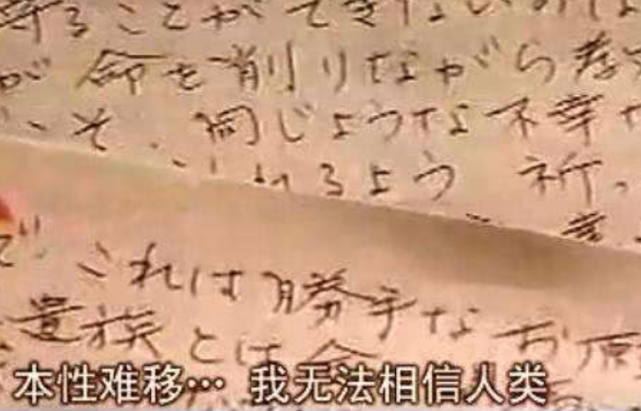 ることができない
が命を削りながら
そ 同じような不幸
れるよう 祈っ
これは勝手なお
遺族とは
本性难移… 我无法相信人类